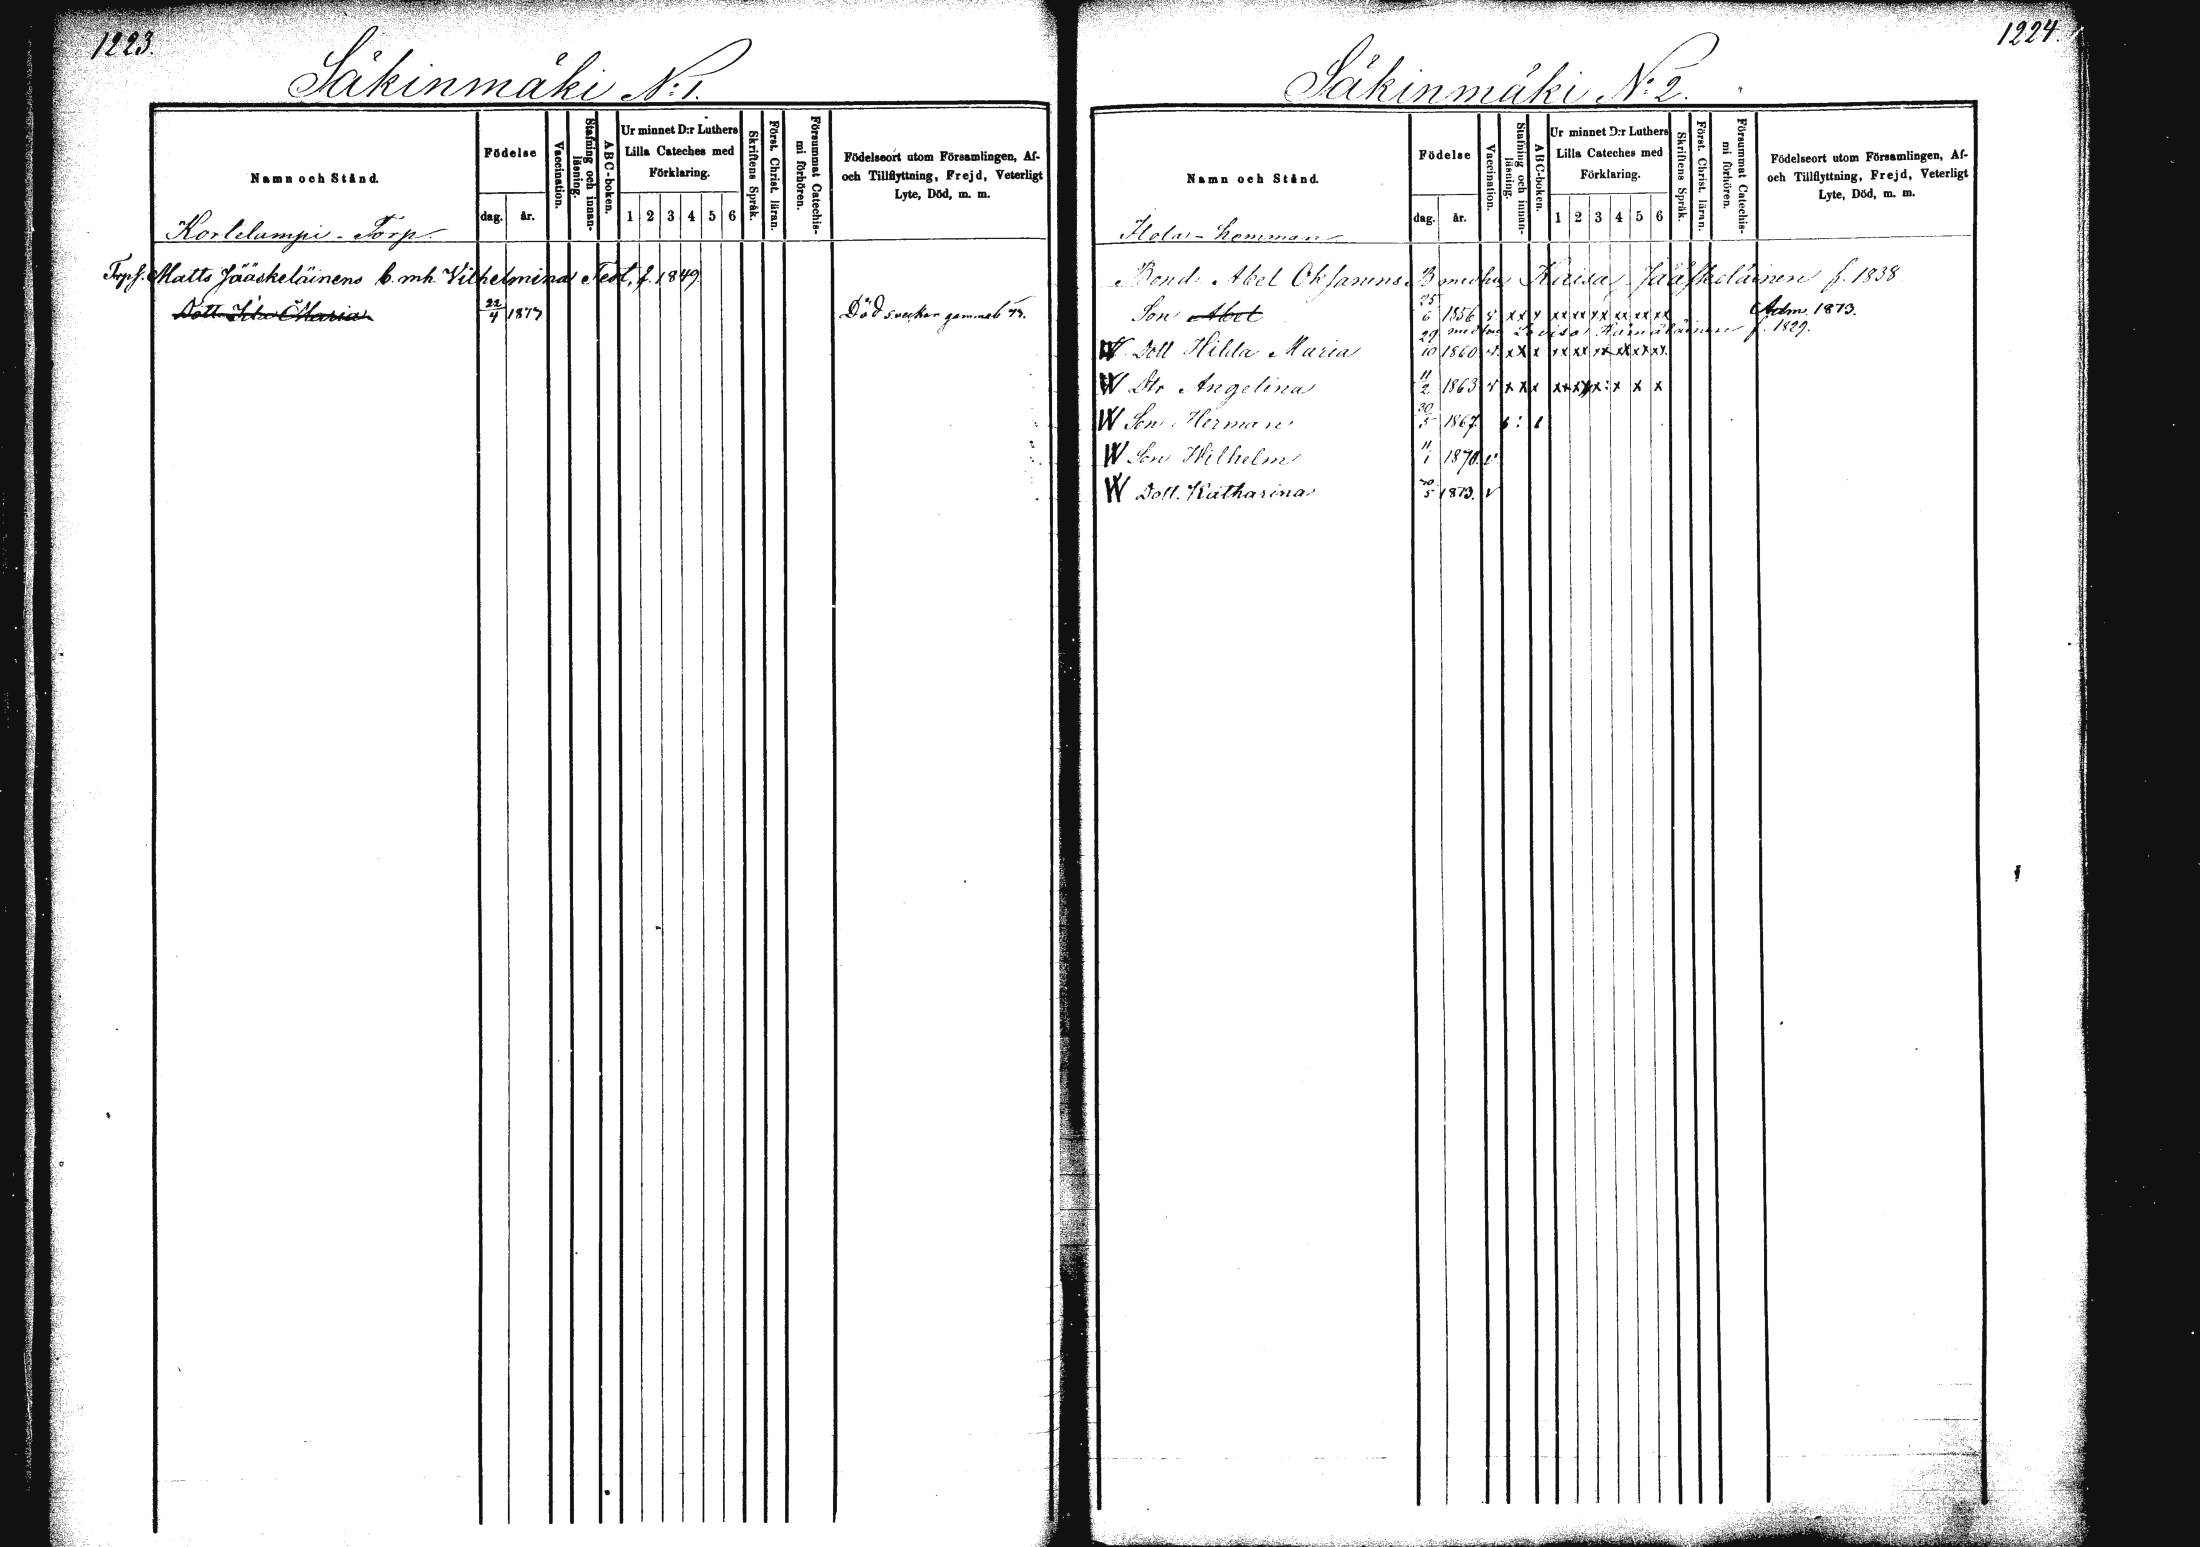 1223.
Säkinmäki N:1.
Namn och Stånd.
Födelse
dag.
år.
Vaccination.
Stafning och innan-
läsning.
ABC-boken.
Ur minnet D:r Luthers
Lilla Cateches med
Förklaring.
1 2 3 4 5 6
Skriftens Språk.
Först. Christ. läran.
Försummat Catechis-
mi förhören.
Födelseort utom Församlingen, Af-
och Tillflyttning, Frejd, Veterligt
Lyte, Död, m. m.
Kortelampi - Torp.
Torpf. Matts Jääskeläinens b. mh. Vilhelmina Test, f. 1849
Dott. Ida Maria 22/4 1877 Död 5 veckor gammal 77.
1224.
Säkinmäki N:2.
Namn och Stånd.
Födelse
dag.
år.
Vaccination.
Stafning och innan-
läsning.
ABC-boken.
Ur minnet D:r Luthers
Lilla Cateches med
Förklaring.
1 2 3 4 5 6
Skriftens Språk.
Först. Christ. läran.
Försummat Catechis-
mi förhören.
Födelseort utom Församlingen, Af-
och Tillflyttning, Frejd, Veterligt
Lyte, Död, m. m.
Hola - hemman
Bond. Abel Oksanens B med hu Kaisa Jääskeläinen f. 1838
Son Abel 25/6 1856 v xx x xx xx xx xx xx xx Adm. 1873.
med hu Lovisa Hämäläinen f. 1829.
W Dott Hilda Maria 29/10 1860 v. xx x xx xx xx xx xx xx
W Dtr Angelina 11/2 1863 v x x x xx xx x: x x x
W Son Herman 30/5 1867.
W Son Wilhelm 11/1 1870. v
W Dott. Katharina 20/5 1873. v